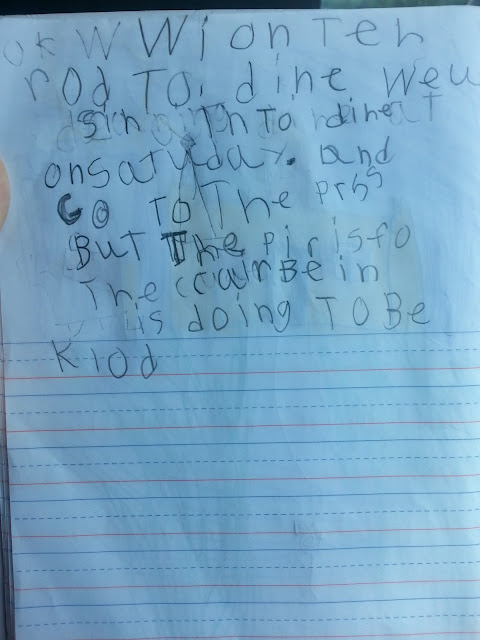 ok W Wi on Teh
rod To. dine Weu
Sin Th To diner
onsatuday. and
Go To The prss
But The Pirisfo
The ccarBe in
is doing To Be
Klod